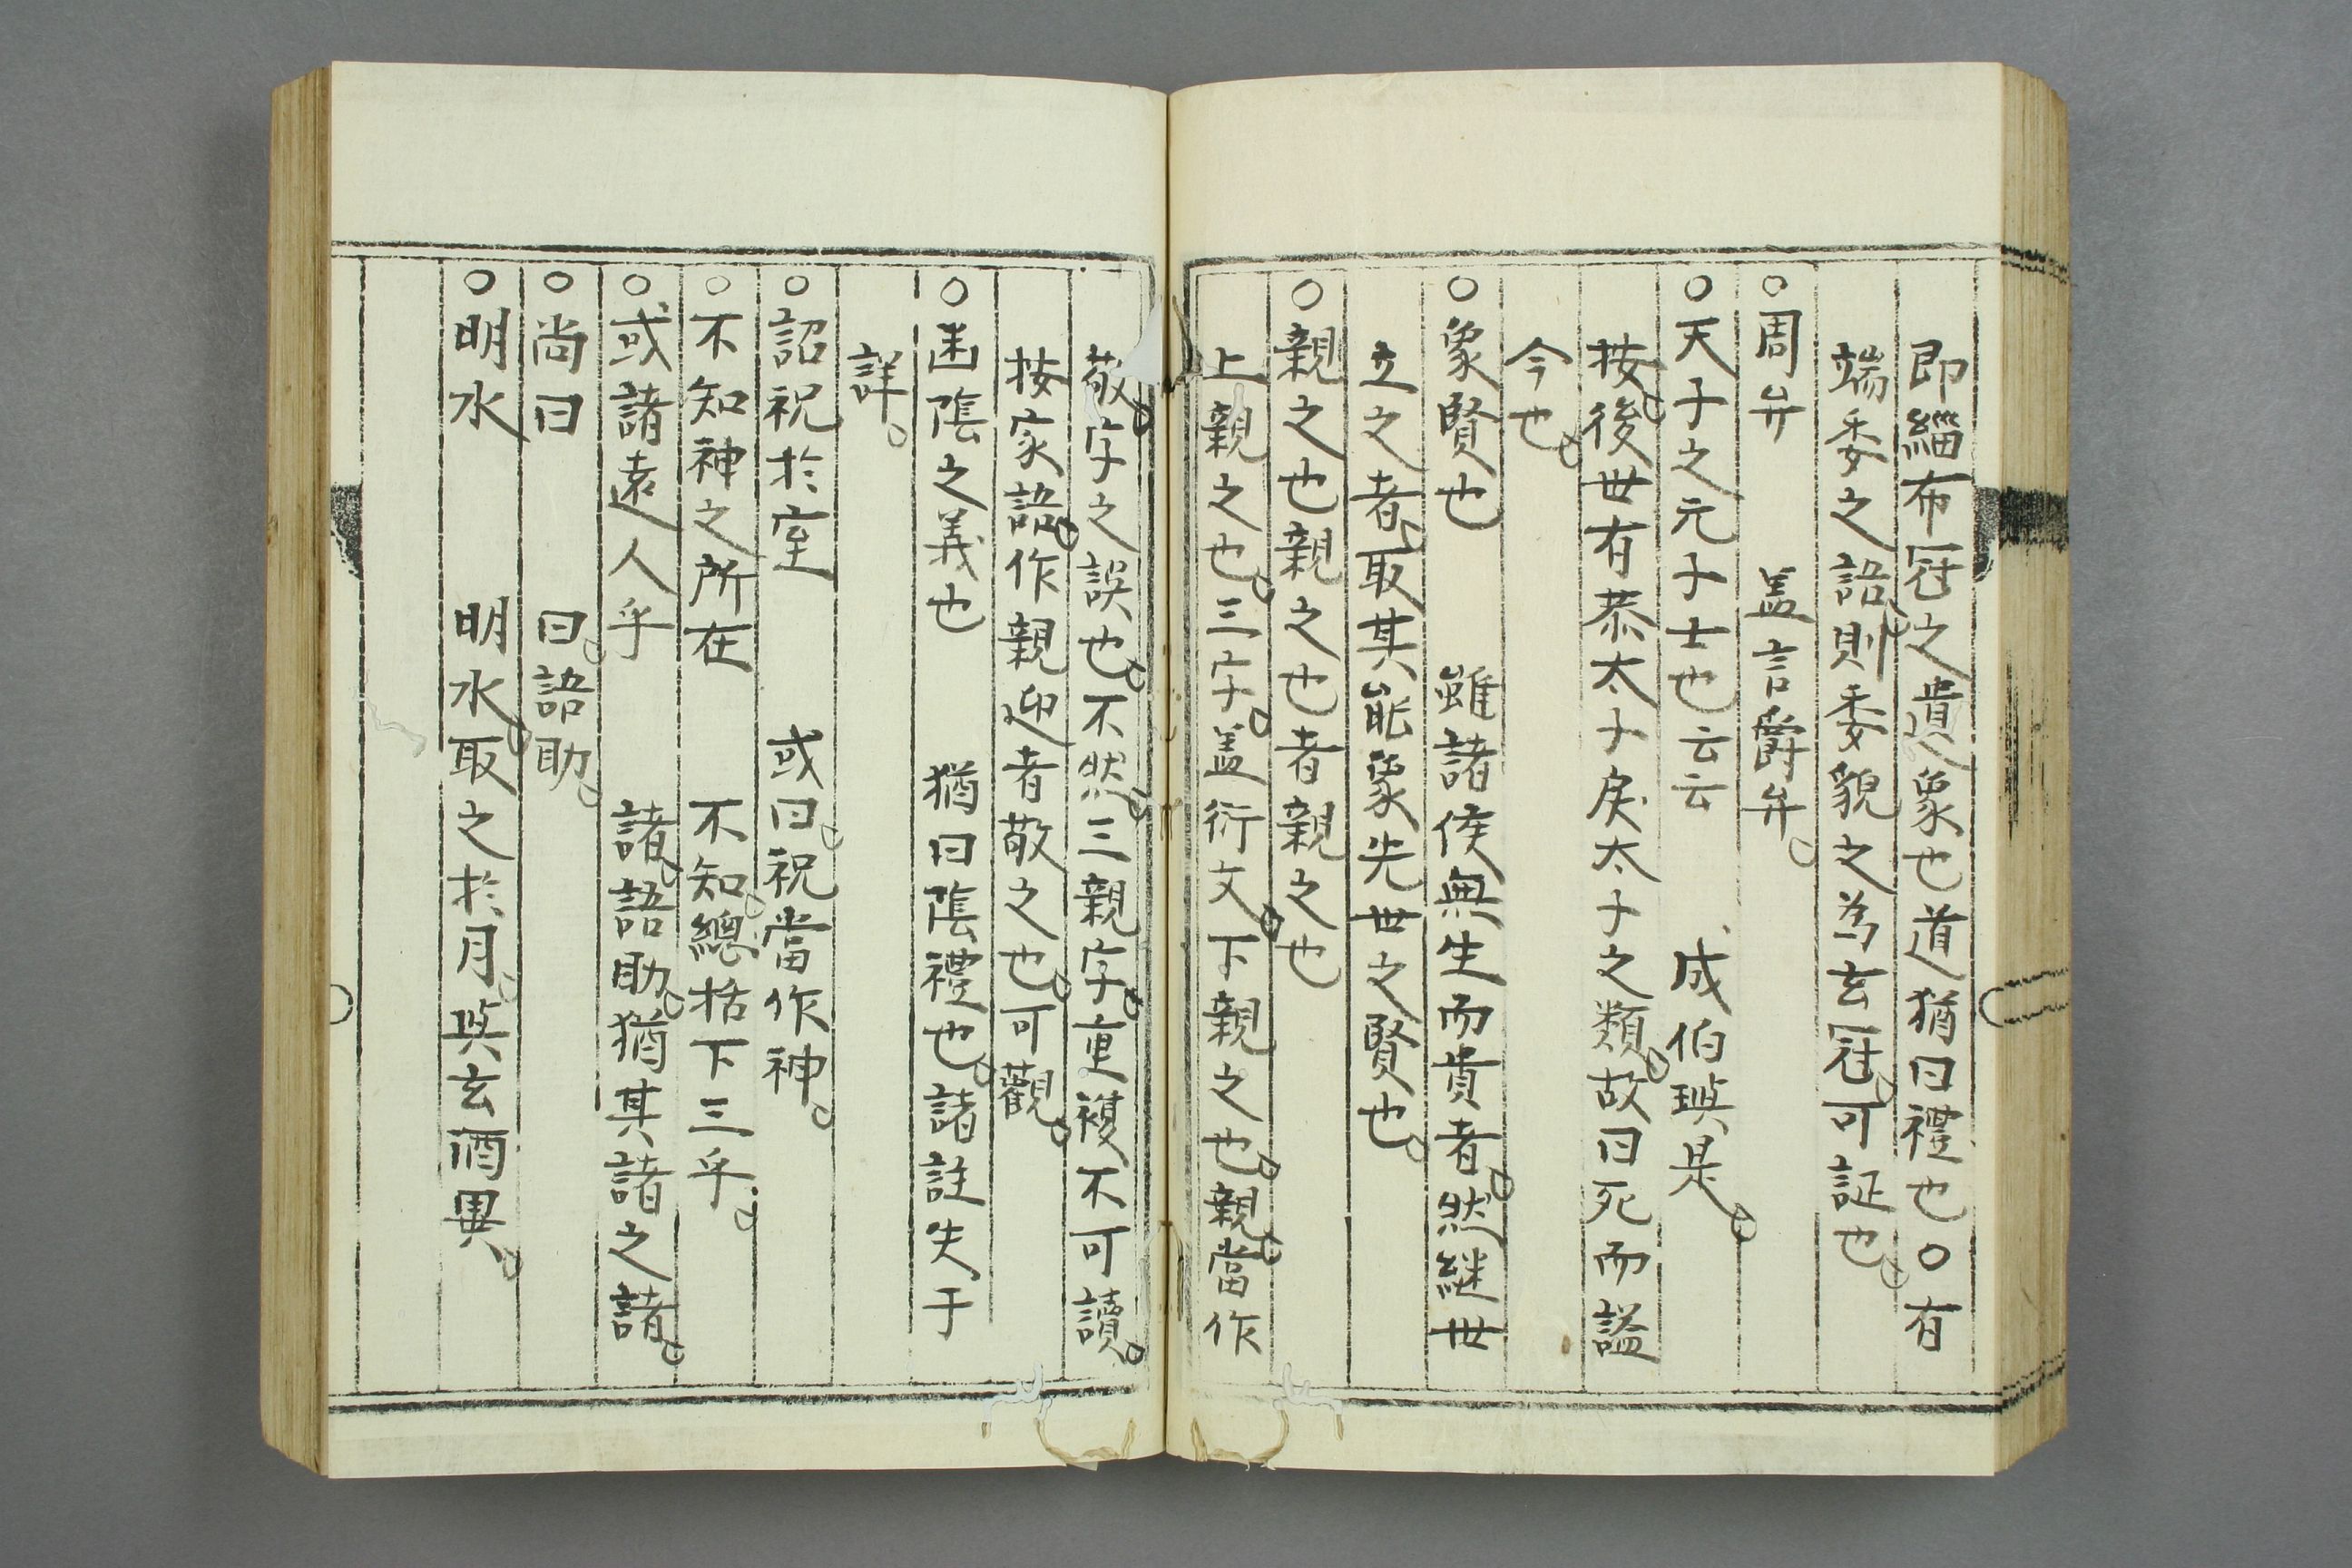 即緇布冠之遺象也道猶曰禮也○有
端委之語則委貌之為玄冠可証也
○周弁　盖言爵弁
○天子之元子士也云云　成伯璵是
按後世有恭太子戾太子之類故曰死而謚
今也
○象賢也　雖諸侯無生而貴者然継世
立之者取其能象先世之賢也
○親之也親之也者親之也
上親之也三字盖衍文下親之也親當作
敬字之誤也不然三親字重複不可讀
按家語作親迎者敬之也可觀
○幽陰之義也　猶曰陰禮也諸註失于
詳
○詔祝於室　或曰祝當作神
○不知神之所在　不知總括下三乎
○或諸遠人乎　諸語助猶其諸之諸
○尚曰　曰語助
○明水　明水取之於月與玄酒異